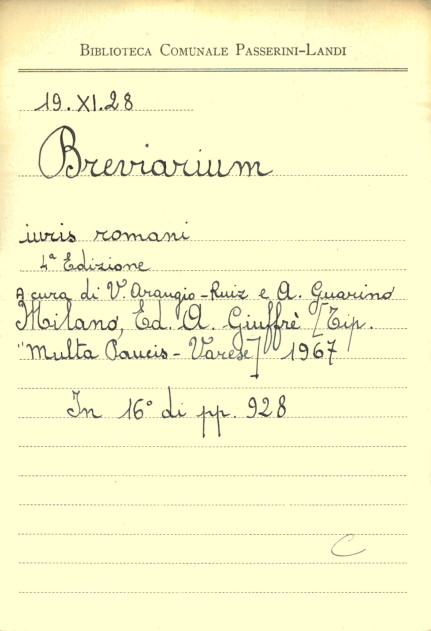 BIBLIOTECA COMUNALE PASSERINI-LANDI
19.XI.28
Breviarium
iuris romani
4ª Edizione
A cura di V. Arangio-Ruiz e A. Guarino
Milano, Ed. A. Giuffrè [Tip.
"Multa Paucis - Varese] 1967
In 16° di pp. 928
C